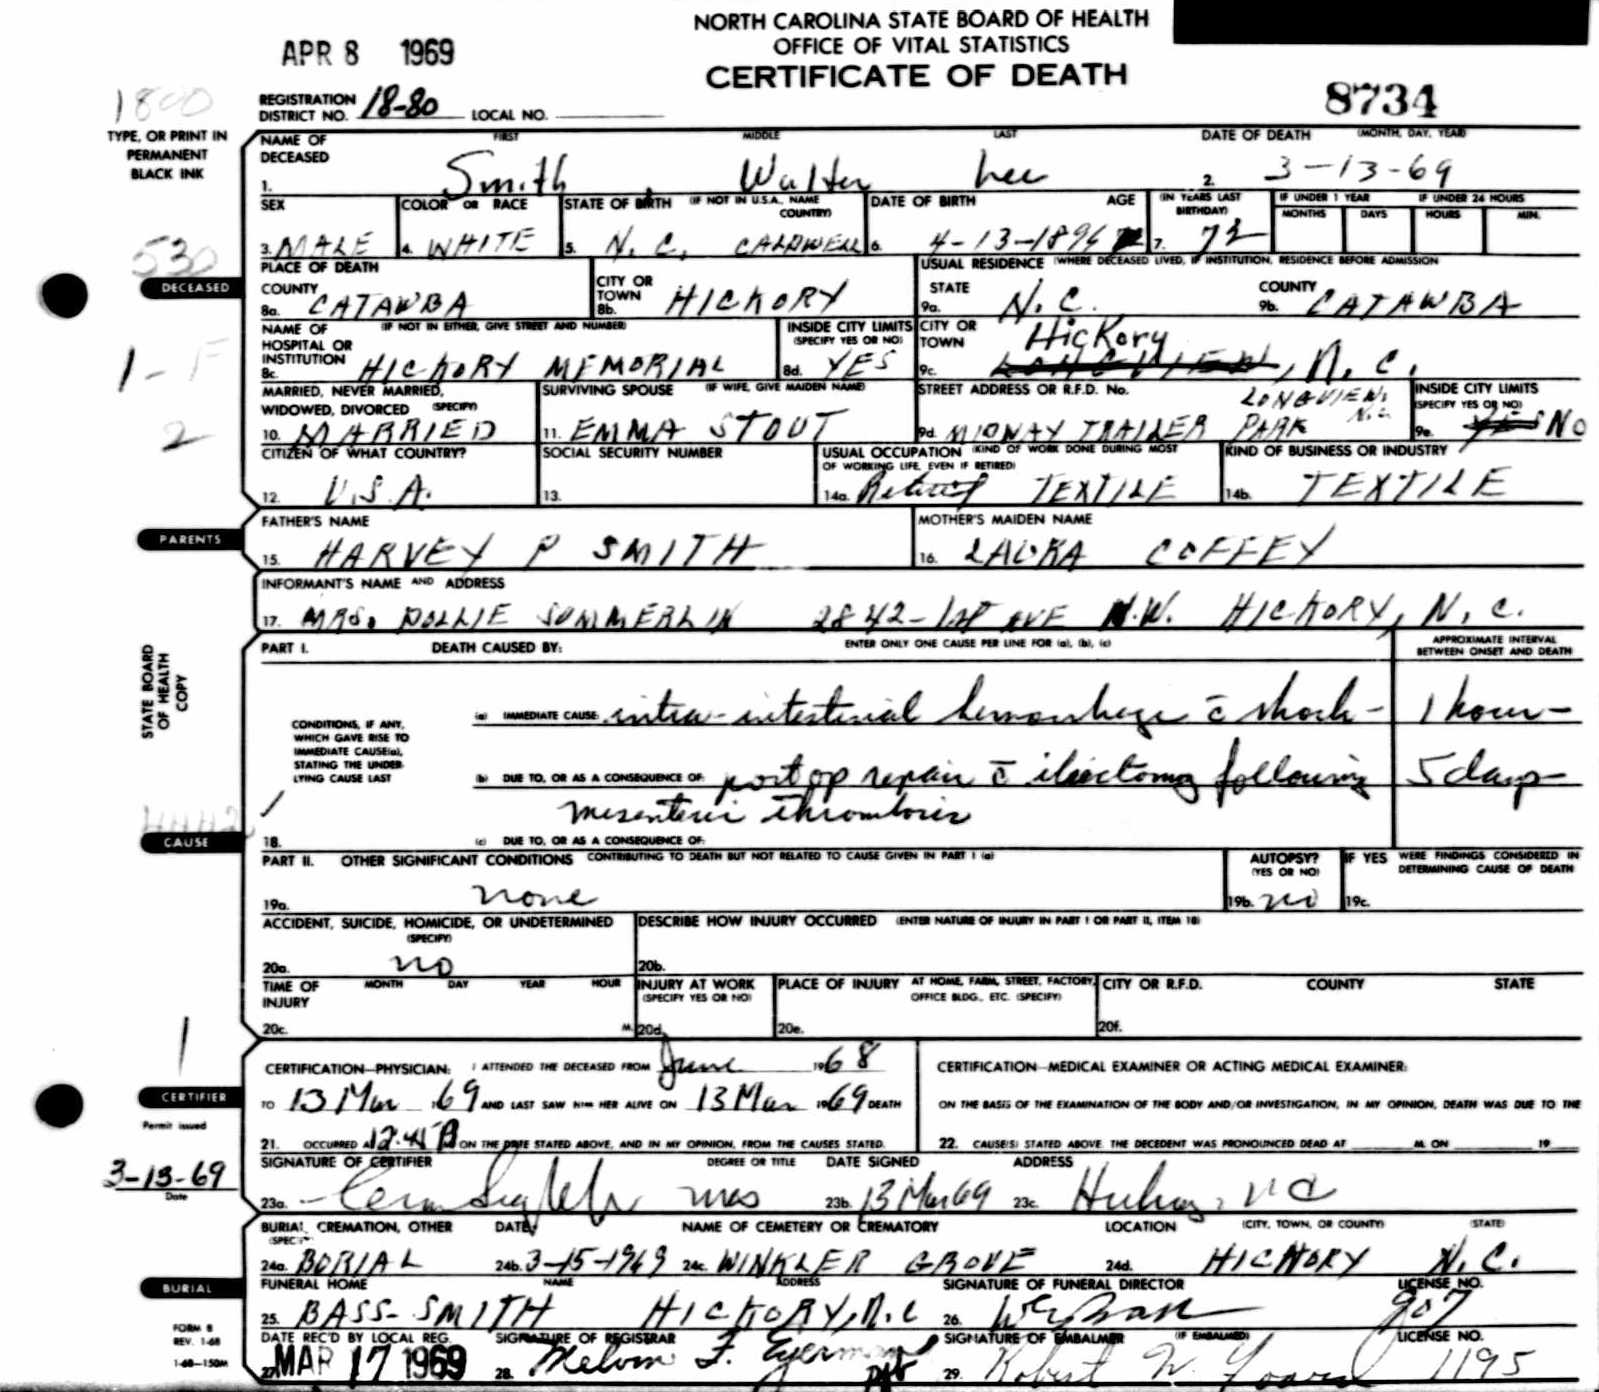 NORTH CAROLINA STATE BOARD OF HEALTH
OFFICE OF VITAL STATISTICS
CERTIFICATE OF DEATH
APR 8 1969
8734
1800
REGISTRATION DISTRICT NO. 18-80 LOCAL NO.
TYPE, OR PRINT IN
PERMANENT
BLACK INK
NAME OF DECEASED FIRST MIDDLE LAST DATE OF DEATH (MONTH, DAY, YEAR)
1. Smith, Walter Lee 2. 3-13-69
SEX COLOR OR RACE STATE OF BIRTH (IF NOT IN U.S.A., NAME COUNTRY) DATE OF BIRTH AGE (IN YEARS LAST BIRTHDAY) IF UNDER 1 YEAR IF UNDER 24 HOURS
MONTHS DAYS HOURS MIN.
3. MALE 4. WHITE 5. N.C. CALDWELL 6. 4-13-1896 7. 72
530
DECEASED
PLACE OF DEATH
USUAL RESIDENCE (WHERE DECEASED LIVED, IF INSTITUTION, RESIDENCE BEFORE ADMISSION
COUNTY 8a. CATAWBA CITY OR TOWN 8b. HICKORY STATE 9a. N.C. COUNTY 9b. CATAWBA
NAME OF HOSPITAL OR INSTITUTION (IF NOT IN EITHER, GIVE STREET AND NUMBER) 8c. HICKORY MEMORIAL
INSIDE CITY LIMITS (SPECIFY YES OR NO) 8d. YES
CITY OR TOWN 9c. Hickory LONGVIEW, N.C.
1-F
2
MARRIED, NEVER MARRIED, WIDOWED, DIVORCED (SPECIFY) 10. MARRIED
SURVIVING SPOUSE (IF WIFE, GIVE MAIDEN NAME) 11. EMMA STOUT
STREET ADDRESS OR R.F.D. No. 9d. MIDWAY TRAILER PARK LONGVIEW, N.C.
INSIDE CITY LIMITS (SPECIFY YES OR NO) 9e. YES NO
CITIZEN OF WHAT COUNTRY? 12. U.S.A.
SOCIAL SECURITY NUMBER 13.
USUAL OCCUPATION (KIND OF WORK DONE DURING MOST OF WORKING LIFE, EVEN IF RETIRED) 14a. Retired TEXTILE
KIND OF BUSINESS OR INDUSTRY 14b. TEXTILE
PARENTS
FATHER'S NAME 15. HARVEY P SMITH
MOTHER'S MAIDEN NAME 16. LAURA COFFEY
INFORMANT'S NAME AND ADDRESS
17. MRS. DOLLIE SUMMERLIN 2842-1st AVE N.W. HICKORY, N.C.
STATE BOARD
OF HEALTH
COPY
PART I. DEATH CAUSED BY: ENTER ONLY ONE CAUSE PER LINE FOR (a), (b), (c) APPROXIMATE INTERVAL BETWEEN ONSET AND DEATH
CONDITIONS, IF ANY,
WHICH GAVE RISE TO
IMMEDIATE CAUSE(a),
STATING THE UNDER-
LYING CAUSE LAST
(a) IMMEDIATE CAUSE: intra-intestinal hemorrhage c̄ shock - 1 hour -
(b) DUE TO, OR AS A CONSEQUENCE OF: post op repair c̄ iliectomy following 5 days -
mesenteric thrombosis
18. (c) DUE TO, OR AS A CONSEQUENCE OF:
CAUSE
PART II. OTHER SIGNIFICANT CONDITIONS CONTRIBUTING TO DEATH BUT NOT RELATED TO CAUSE GIVEN IN PART I (a)
19a. none
AUTOPSY? (YES OR NO) 19b. no
IF YES WERE FINDINGS CONSIDERED IN DETERMINING CAUSE OF DEATH 19c.
ACCIDENT, SUICIDE, HOMICIDE, OR UNDETERMINED (SPECIFY) 20a. no
DESCRIBE HOW INJURY OCCURRED (ENTER NATURE OF INJURY IN PART I OR PART II, ITEM 18) 20b.
TIME OF INJURY MONTH DAY YEAR HOUR 20c. M.
INJURY AT WORK (SPECIFY YES OR NO) 20d.
PLACE OF INJURY AT HOME, FARM, STREET, FACTORY, OFFICE BLDG., ETC. (SPECIFY) 20e.
CITY OR R.F.D. COUNTY STATE 20f.
1
CERTIFIER
CERTIFICATION—PHYSICIAN: I ATTENDED THE DECEASED FROM June 1968
TO 13 Mar 1969 AND LAST SAW HIM HER ALIVE ON 13 Mar 1969 DEATH
21. OCCURRED AT 12:45 ON THE DATE STATED ABOVE, AND IN MY OPINION, FROM THE CAUSES STATED.
CERTIFICATION—MEDICAL EXAMINER OR ACTING MEDICAL EXAMINER:
ON THE BASIS OF THE EXAMINATION OF THE BODY AND/OR INVESTIGATION, IN MY OPINION, DEATH WAS DUE TO THE
22. CAUSE(S) STATED ABOVE. THE DECEDENT WAS PRONOUNCED DEAD AT M. ON 19
Permit issued
3-13-69
Date
SIGNATURE OF CERTIFIER DEGREE OR TITLE DATE SIGNED ADDRESS
23a. 23b. 13 Mar 69 23c. Hickory, NC
BURIAL
BURIAL, CREMATION, OTHER (SPECIFY) 24a. BURIAL
DATE 24b. 3-15-1969
NAME OF CEMETERY OR CREMATORY 24c. WINKLER GROVE
LOCATION (CITY, TOWN, OR COUNTY) (STATE) 24d. HICKORY N.C.
FUNERAL HOME NAME ADDRESS 25. BASS-SMITH HICKORY, N.C
SIGNATURE OF FUNERAL DIRECTOR 26. LICENSE NO. 907
DATE REC'D BY LOCAL REG. 27. MAR 17 1969
SIGNATURE OF REGISTRAR 28. Melvin F. Eyerman
SIGNATURE OF EMBALMER (IF EMBALMED) 29. Robert W. LICENSE NO. 1195
FORM 8
REV. 1-68
1-68-150M